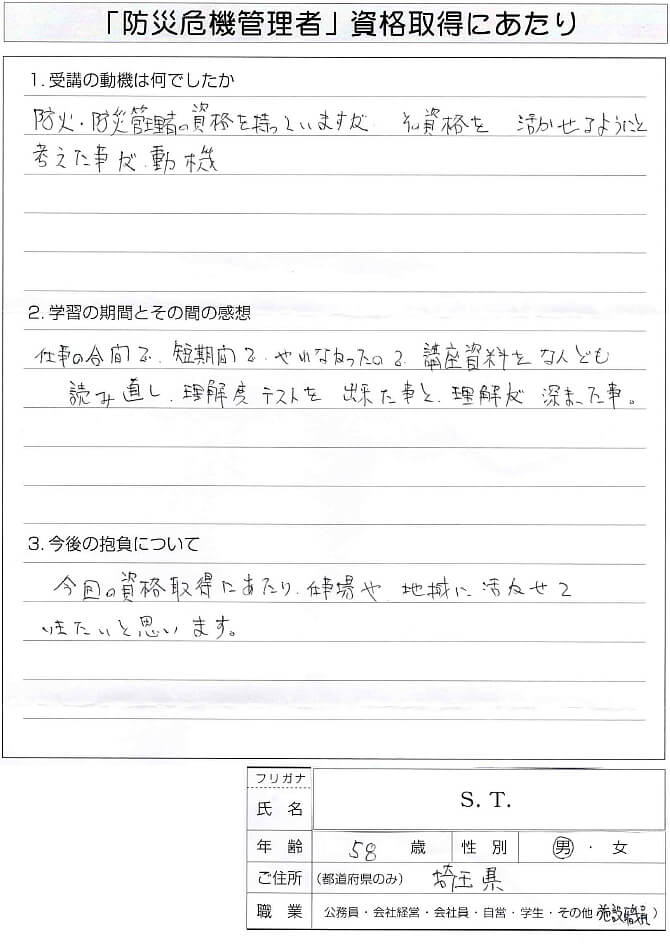 「防災危機管理者」資格取得にあたり
1. 受講の動機は何でしたか
防火・防災管理者の資格を持っていますが その資格を 活かせるようにと
考えた事が、動機
2. 学習の期間とその間の感想
仕事の合間で、短期間で、やれなかったので、講座資料をなんども
読み直し、理解度テストを 出来た事と、理解が 深まった事。
3. 今後の抱負について
今回の資格取得にあたり、仕事場や、地域に 活かせて
いきたいと思います。
フリガナ
氏 名 S. T.
年 齢 58 歳 性 別 男 ・ 女
ご住所 (都道府県のみ) 埼玉県
職 業 公務員・会社経営・会社員・自営・学生・その他(施設職員)